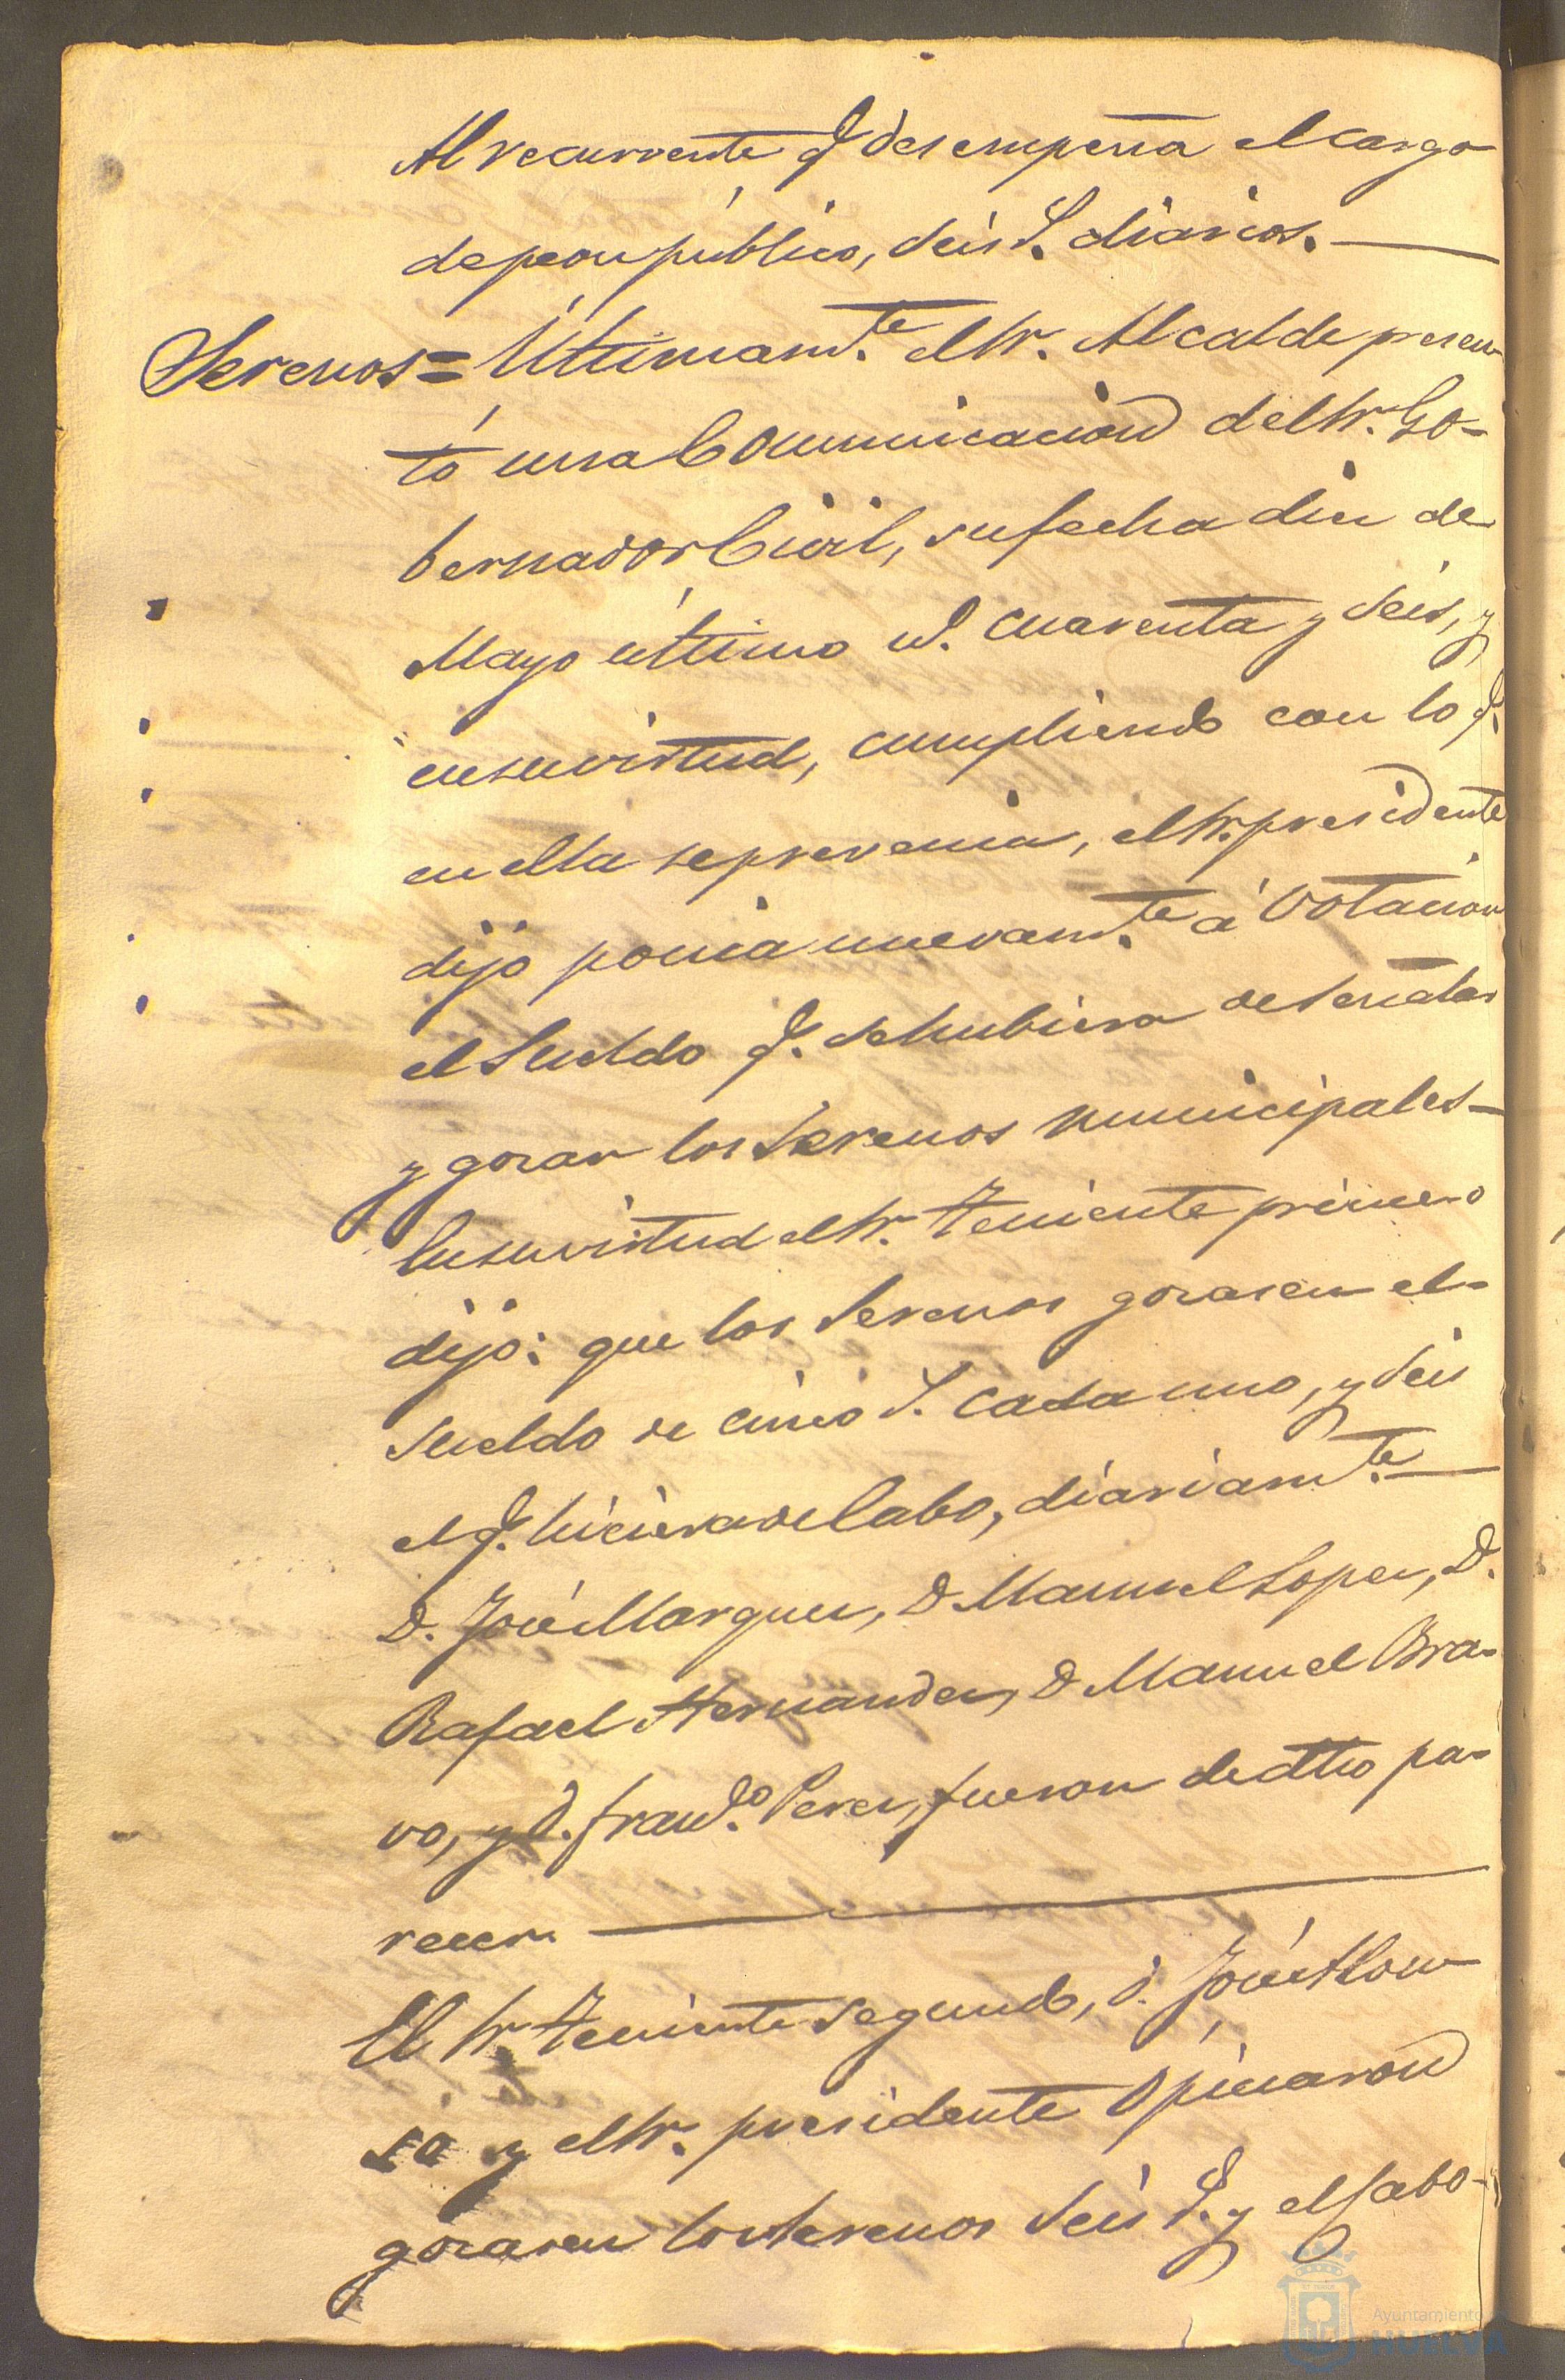 Al recurrente q. desempeña el cargo
de peon público, seis r. diarios.
Serenos = Ultimamte. el Sr. Alcalde presen
tó una Comunicacion del Sr. Go-
bernador Civil, su fecha diez de
Mayo último nº. cuarenta y seis, y
en su virtud, cumpliendo con lo q.
en ella se prevenia, el Sr. presidente
dijo ponia nuevamte. á votacion
el sueldo q. se hubiera de señalar
y gozar los serenos municipales-
En su virtud el Sr. Teniente primero
dijo: que los serenos gozasen el-
sueldo de cinco r. cada uno, y seis
el q. hiciera de Cabo, diariamte.
D. José Marquez, D. Manuel Lopez, D.
Rafael Hernandez, D Manuel Bra-
vo, y D. Franco. Perez, fueron de dtho pa-
recer.
El Sr. Teniente segundo, D. José
y el Sr. presidente opinaron
gozasen los serenos seis r. y el Cabo-
Ayuntamiento
HUELVA